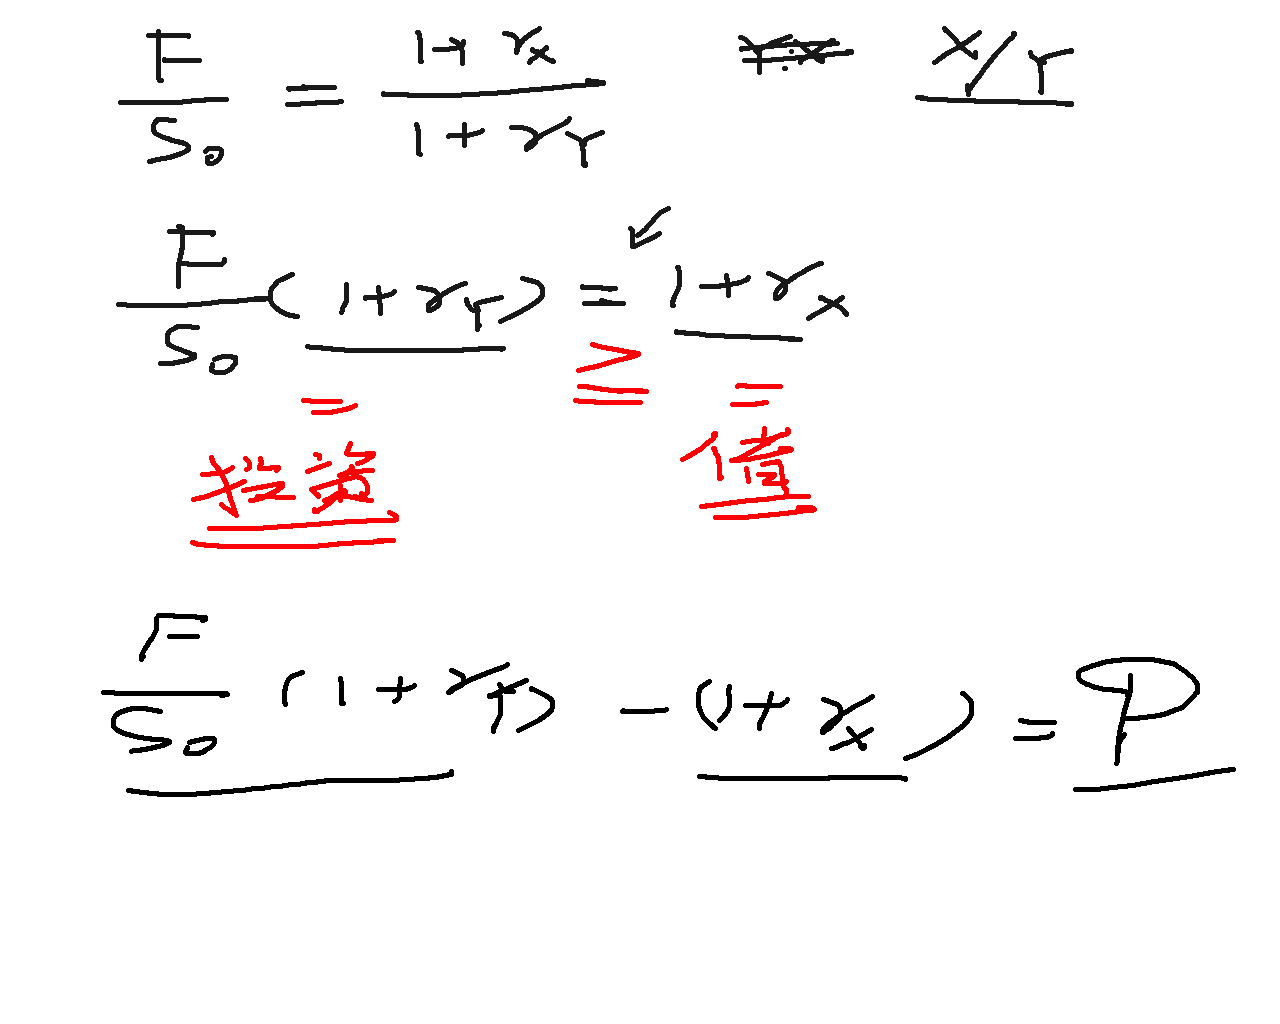 F/S₀ = (1 + r_X)/(1 + r_Y) X/Y
F/S₀ (1 + r_Y) = 1 + r_X
= ≧ =
投资 借
F/S₀ (1 + r_Y) - (1 + r_X) = P